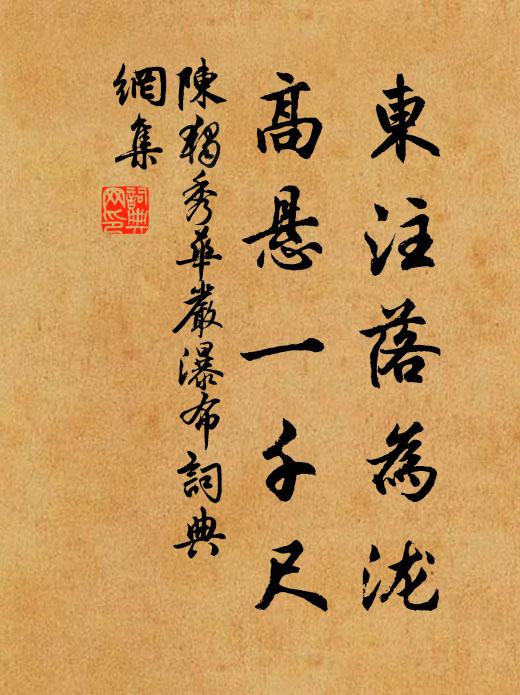 東注落為瀧
高悬一千尺
陳獨秀華嚴瀑布詞典
網集
詞典
网印